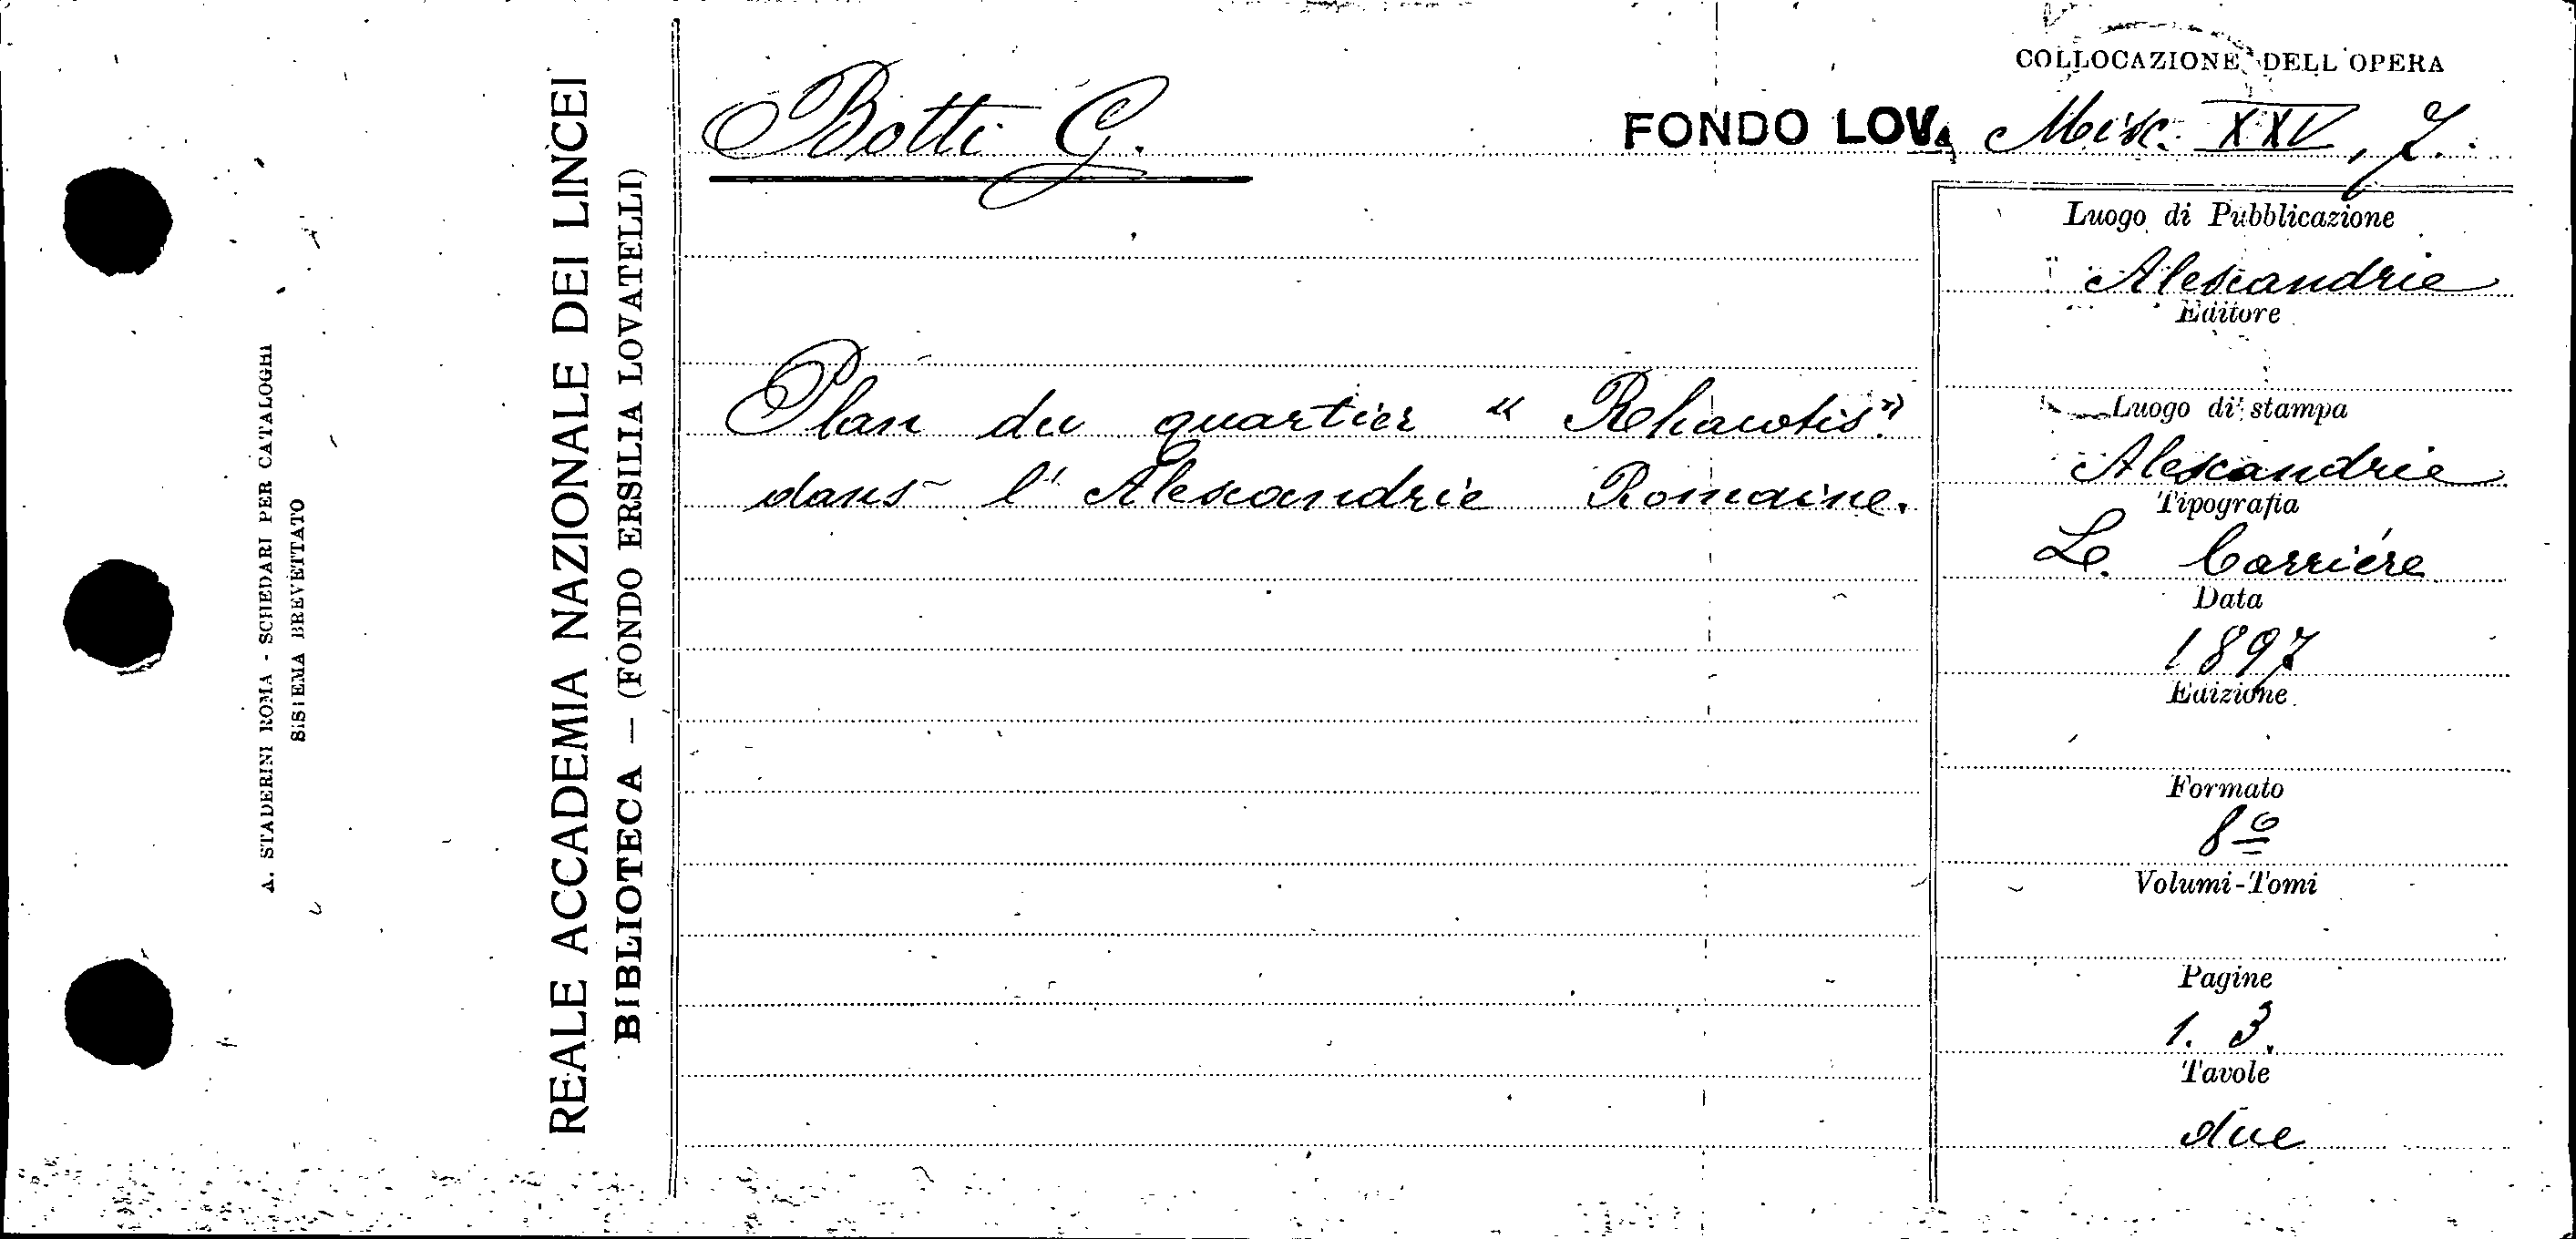 A. STADERINI ROMA - SCHEDARI PER CATALOGHI
SISTEMA BREVETTATO
REALE ACCADEMIA NAZIONALE DEI LINCEI
BIBLIOTECA — (FONDO ERSILIA LOVATELLI)
Botti G.
Plan du quartier « Rhacotis »
dans l' Alexandrie Romaine.
COLLOCAZIONE DELL'OPERA
FONDO LOV. Misc. XXV, 7.
Luogo di Pubblicazione
Alexandrie
Editore
Luogo di stampa
Alexandrie
Tipografia
L. Carriére
Data
1897
Edizione
Formato
8º
Volumi-Tomi
Pagine
1. 3.
Tavole
due